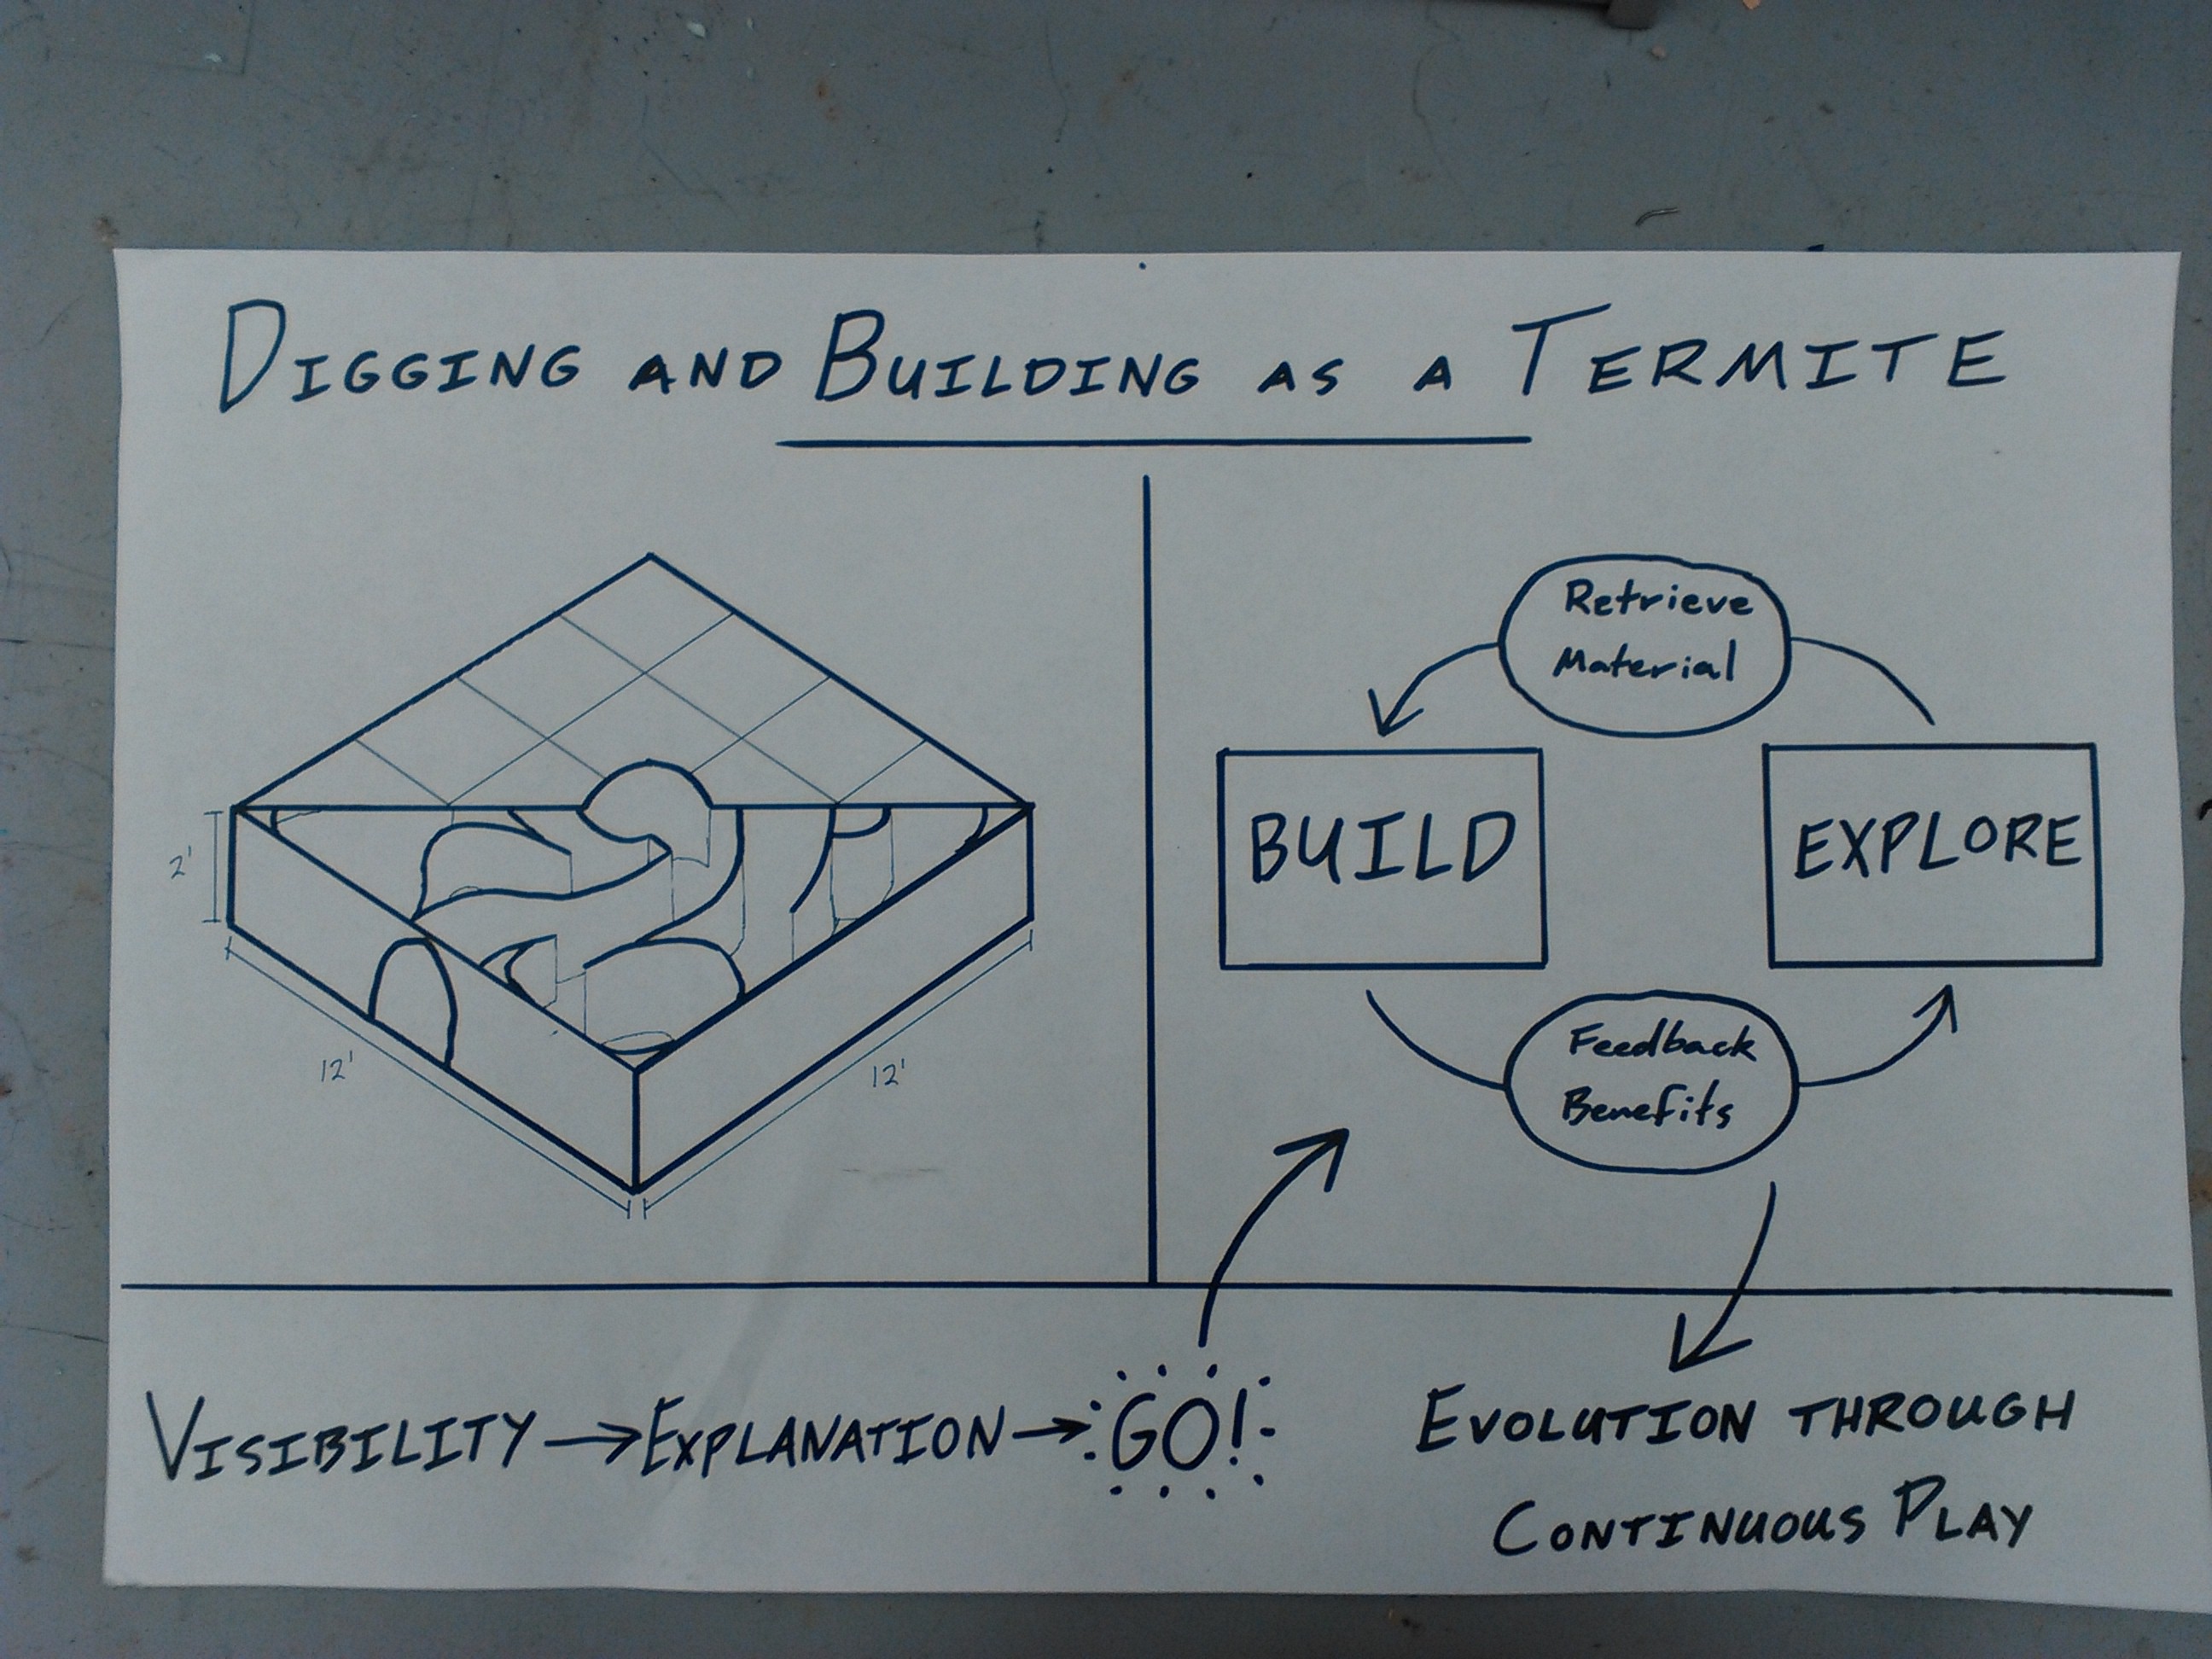 DIGGING AND BUILDING AS A TERMITE
2'
12'
12'
Retrieve
Material
BUILD
EXPLORE
Feedback
Benefits
VISIBILITY → EXPLANATION → GO!
EVOLUTION THROUGH
CONTINUOUS PLAY